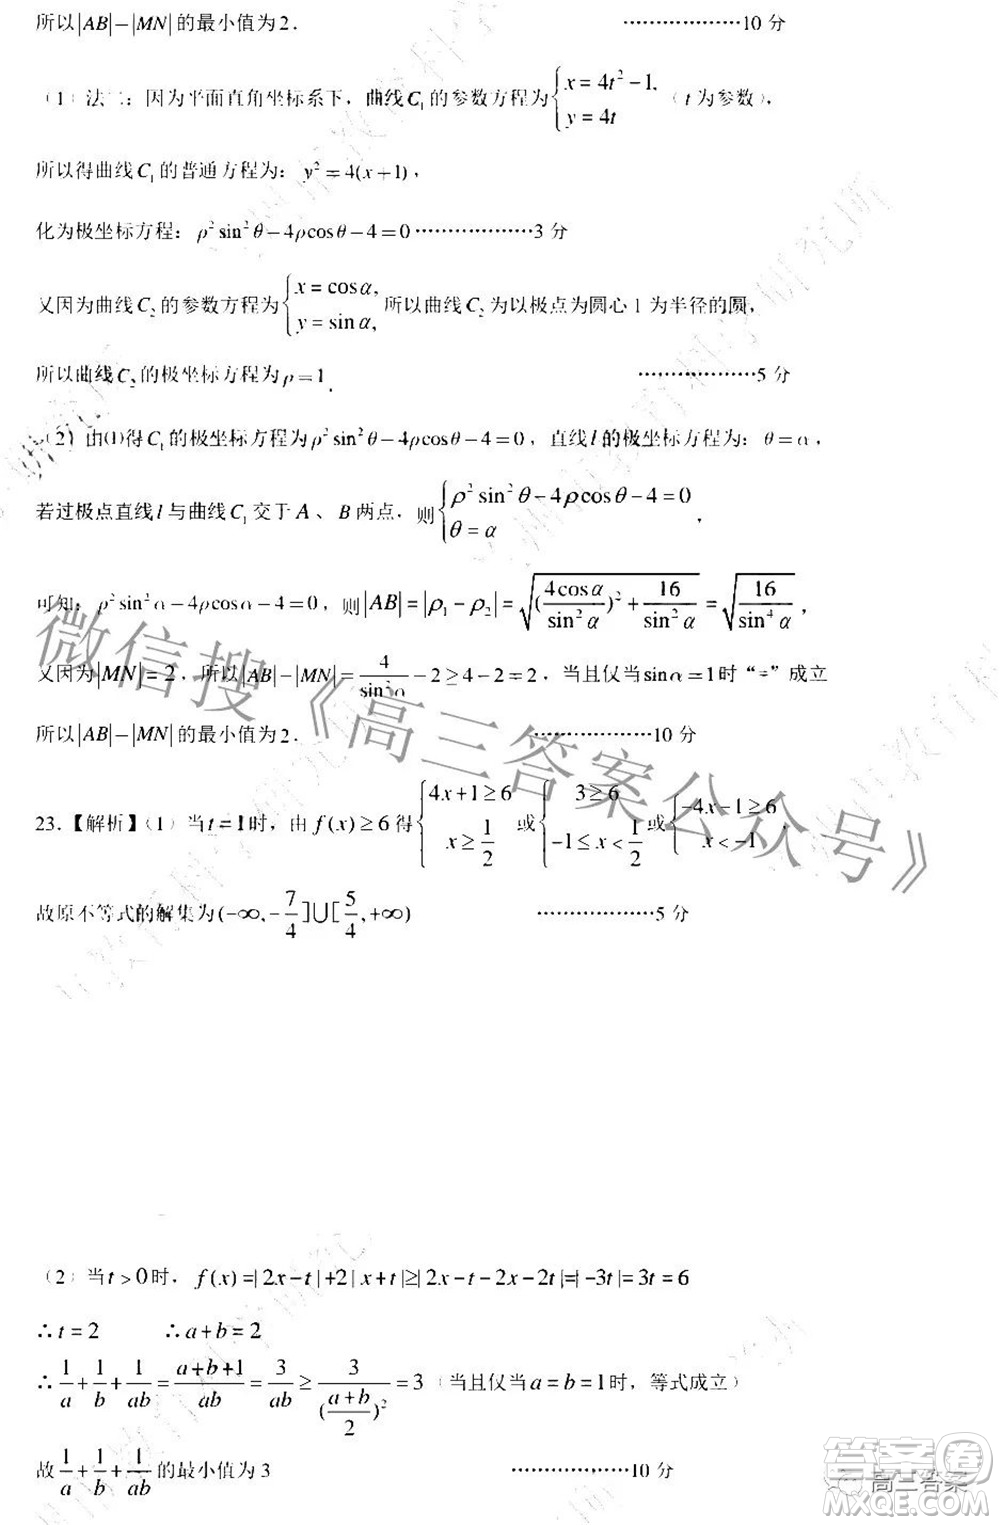 所以|AB|−|MN|的最小值为2. ………………10 分
(1) 法二：因为平面直角坐标系下，曲线C₁的参数方程为{x=4t²−1, y=4t （t为参数），
所以得曲线C₁的普通方程为：y²=4(x+1)，
化为极坐标方程：ρ²sin²θ−4ρcosθ−4=0………………3 分
又因为曲线C₂的参数方程为{x=cosα, y=sinα, 所以曲线C₂为以极点为圆心1为半径的圆,
所以曲线C₂的极坐标方程为ρ=1. ………………5 分
(2) 由(1)得C₁的极坐标方程为ρ²sin²θ−4ρcosθ−4=0，直线l的极坐标方程为：θ=α，
若过极点直线l与曲线C₁交于A、B两点，则{ρ²sin²θ−4ρcosθ−4=0 θ=α ,
可知：ρ²sin²α−4ρcosα−4=0，则|AB|=|ρ₁−ρ₂|=√((4cosα/sin²α)²+16/sin²α)=√(16/sin⁴α)，
又因为|MN|=2，所以|AB|−|MN|=4/sin²α−2≥4−2=2，当且仅当sinα=1时“=”成立
所以|AB|−|MN|的最小值为2. ………………10 分
23.【解析】(1) 当t=1时，由f(x)≥6得{4x+1≥6 x≥1/2 或{3≥6 −1≤x<1/2 或{−4x−1≥6 x<−1
故原不等式的解集为(−∞,−7/4]∪[5/4,+∞) ………………5 分
(2) 当t>0时，f(x)=|2x−t|+2|x+t|≥|2x−t−2x−2t|=|−3t|=3t=6
∴t=2 ∴a+b=2
∴1/a+1/b+1/ab=(a+b+1)/ab=3/ab≥3/((a+b)/2)²=3（当且仅当a=b=1时，等式成立）
故1/a+1/b+1/ab的最小值为3 ………………10 分
微信搜《高三答案公众号》
答案卷
高三答案
MXQE.COM